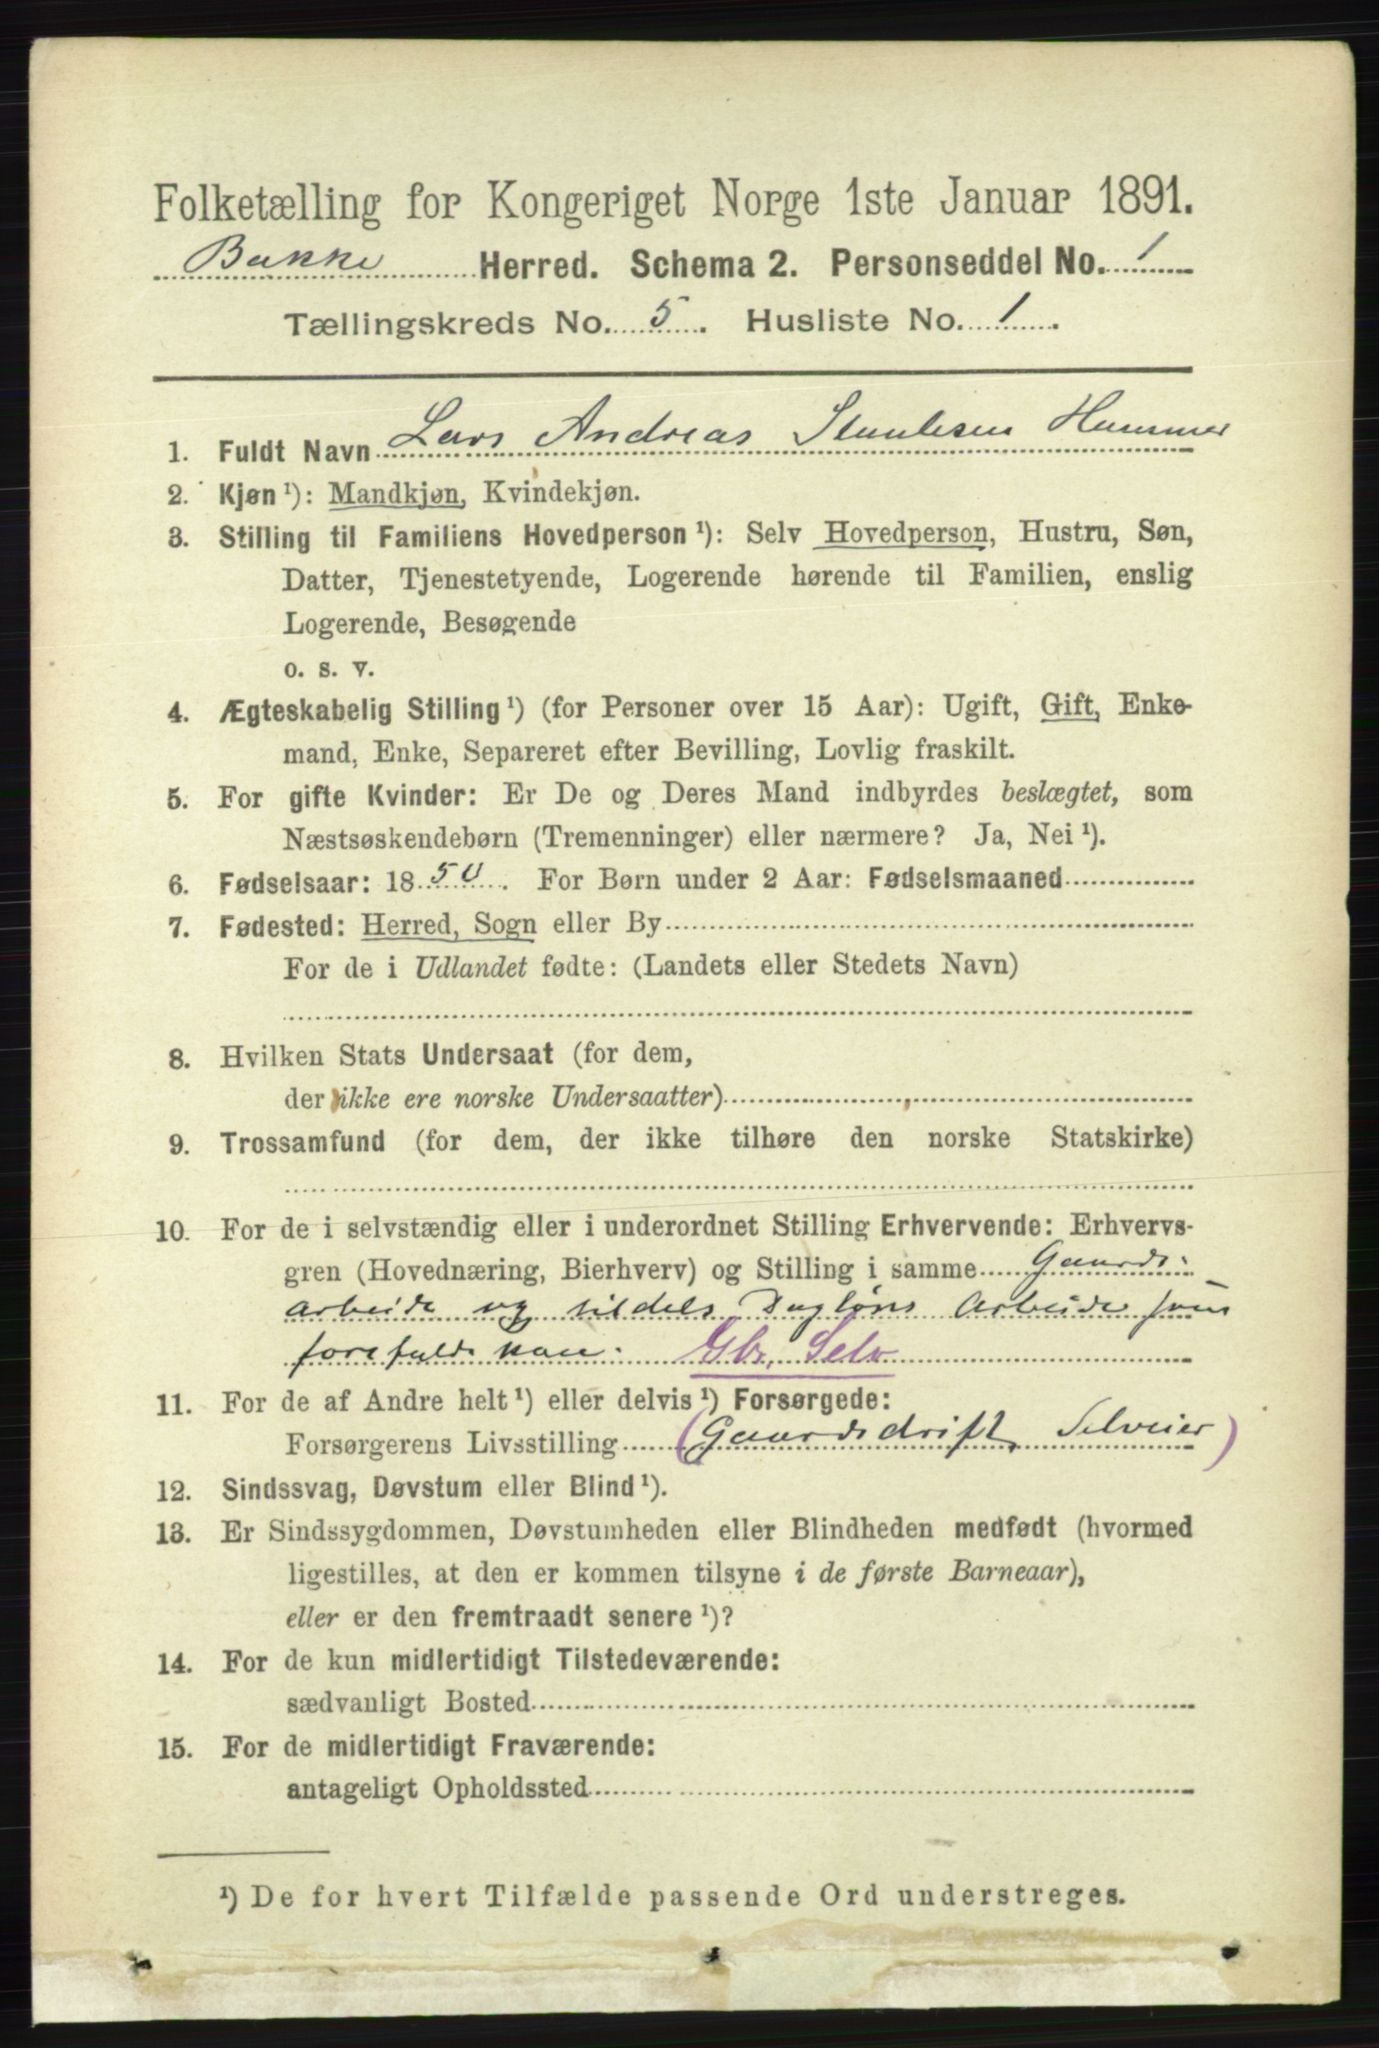 Folketælling for Kongeriget Norge 1ste Januar 1891.
Bakke Herred. Schema 2. Personseddel No. 1
Tællingskreds No. 5. Husliste No. 1.
1. Fuldt Navn Lars Andreas Hammer
2. Kjøn ¹): Mandkjøn, Kvindekjøn.
3. Stilling til Familiens Hovedperson ¹): Selv Hovedperson, Hustru, Søn,
Datter, Tjenestetyende, Logerende hørende til Familien, enslig
Logerende, Besøgende
o. s. v.
4. Ægteskabelig Stilling ¹) (for Personer over 15 Aar): Ugift, Gift, Enke-
mand, Enke, Separeret efter Bevilling, Lovlig fraskilt.
5. For gifte Kvinder: Er De og Deres Mand indbyrdes beslægtet, som
Næstsøskendebørn (Tremenninger) eller nærmere? Ja, Nei ¹).
6. Fødselsaar: 1850. For Børn under 2 Aar: Fødselsmaaned
7. Fødested: Herred, Sogn eller By
For de i Udlandet fødte: (Landets eller Stedets Navn)
8. Hvilken Stats Undersaat (for dem,
der ikke ere norske Undersaatter)
9. Trossamfund (for dem, der ikke tilhøre den norske Statskirke)
10. For de i selvstændig eller i underordnet Stilling Erhvervende: Erhvervs-
gren (Hovednæring, Bierhverv) og Stilling i samme Gaards-
arbeide og tildels Dagløns Arbeide som
forefalde kan. Gbr. Selv
11. For de af Andre helt ¹) eller delvis ¹) Forsørgede:
Forsørgerens Livsstilling (Gaardsdrift, Selveier)
12. Sindssvag, Døvstum eller Blind ¹).
13. Er Sindssygdommen, Døvstumheden eller Blindheden medfødt (hvormed
ligestilles, at den er kommen tilsyne i de første Barneaar),
eller er den fremtraadt senere ¹)?
14. For de kun midlertidigt Tilstedeværende:
sædvanligt Bosted
15. For de midlertidigt Fraværende:
antageligt Opholdssted
¹) De for hvert Tilfælde passende Ord understreges.